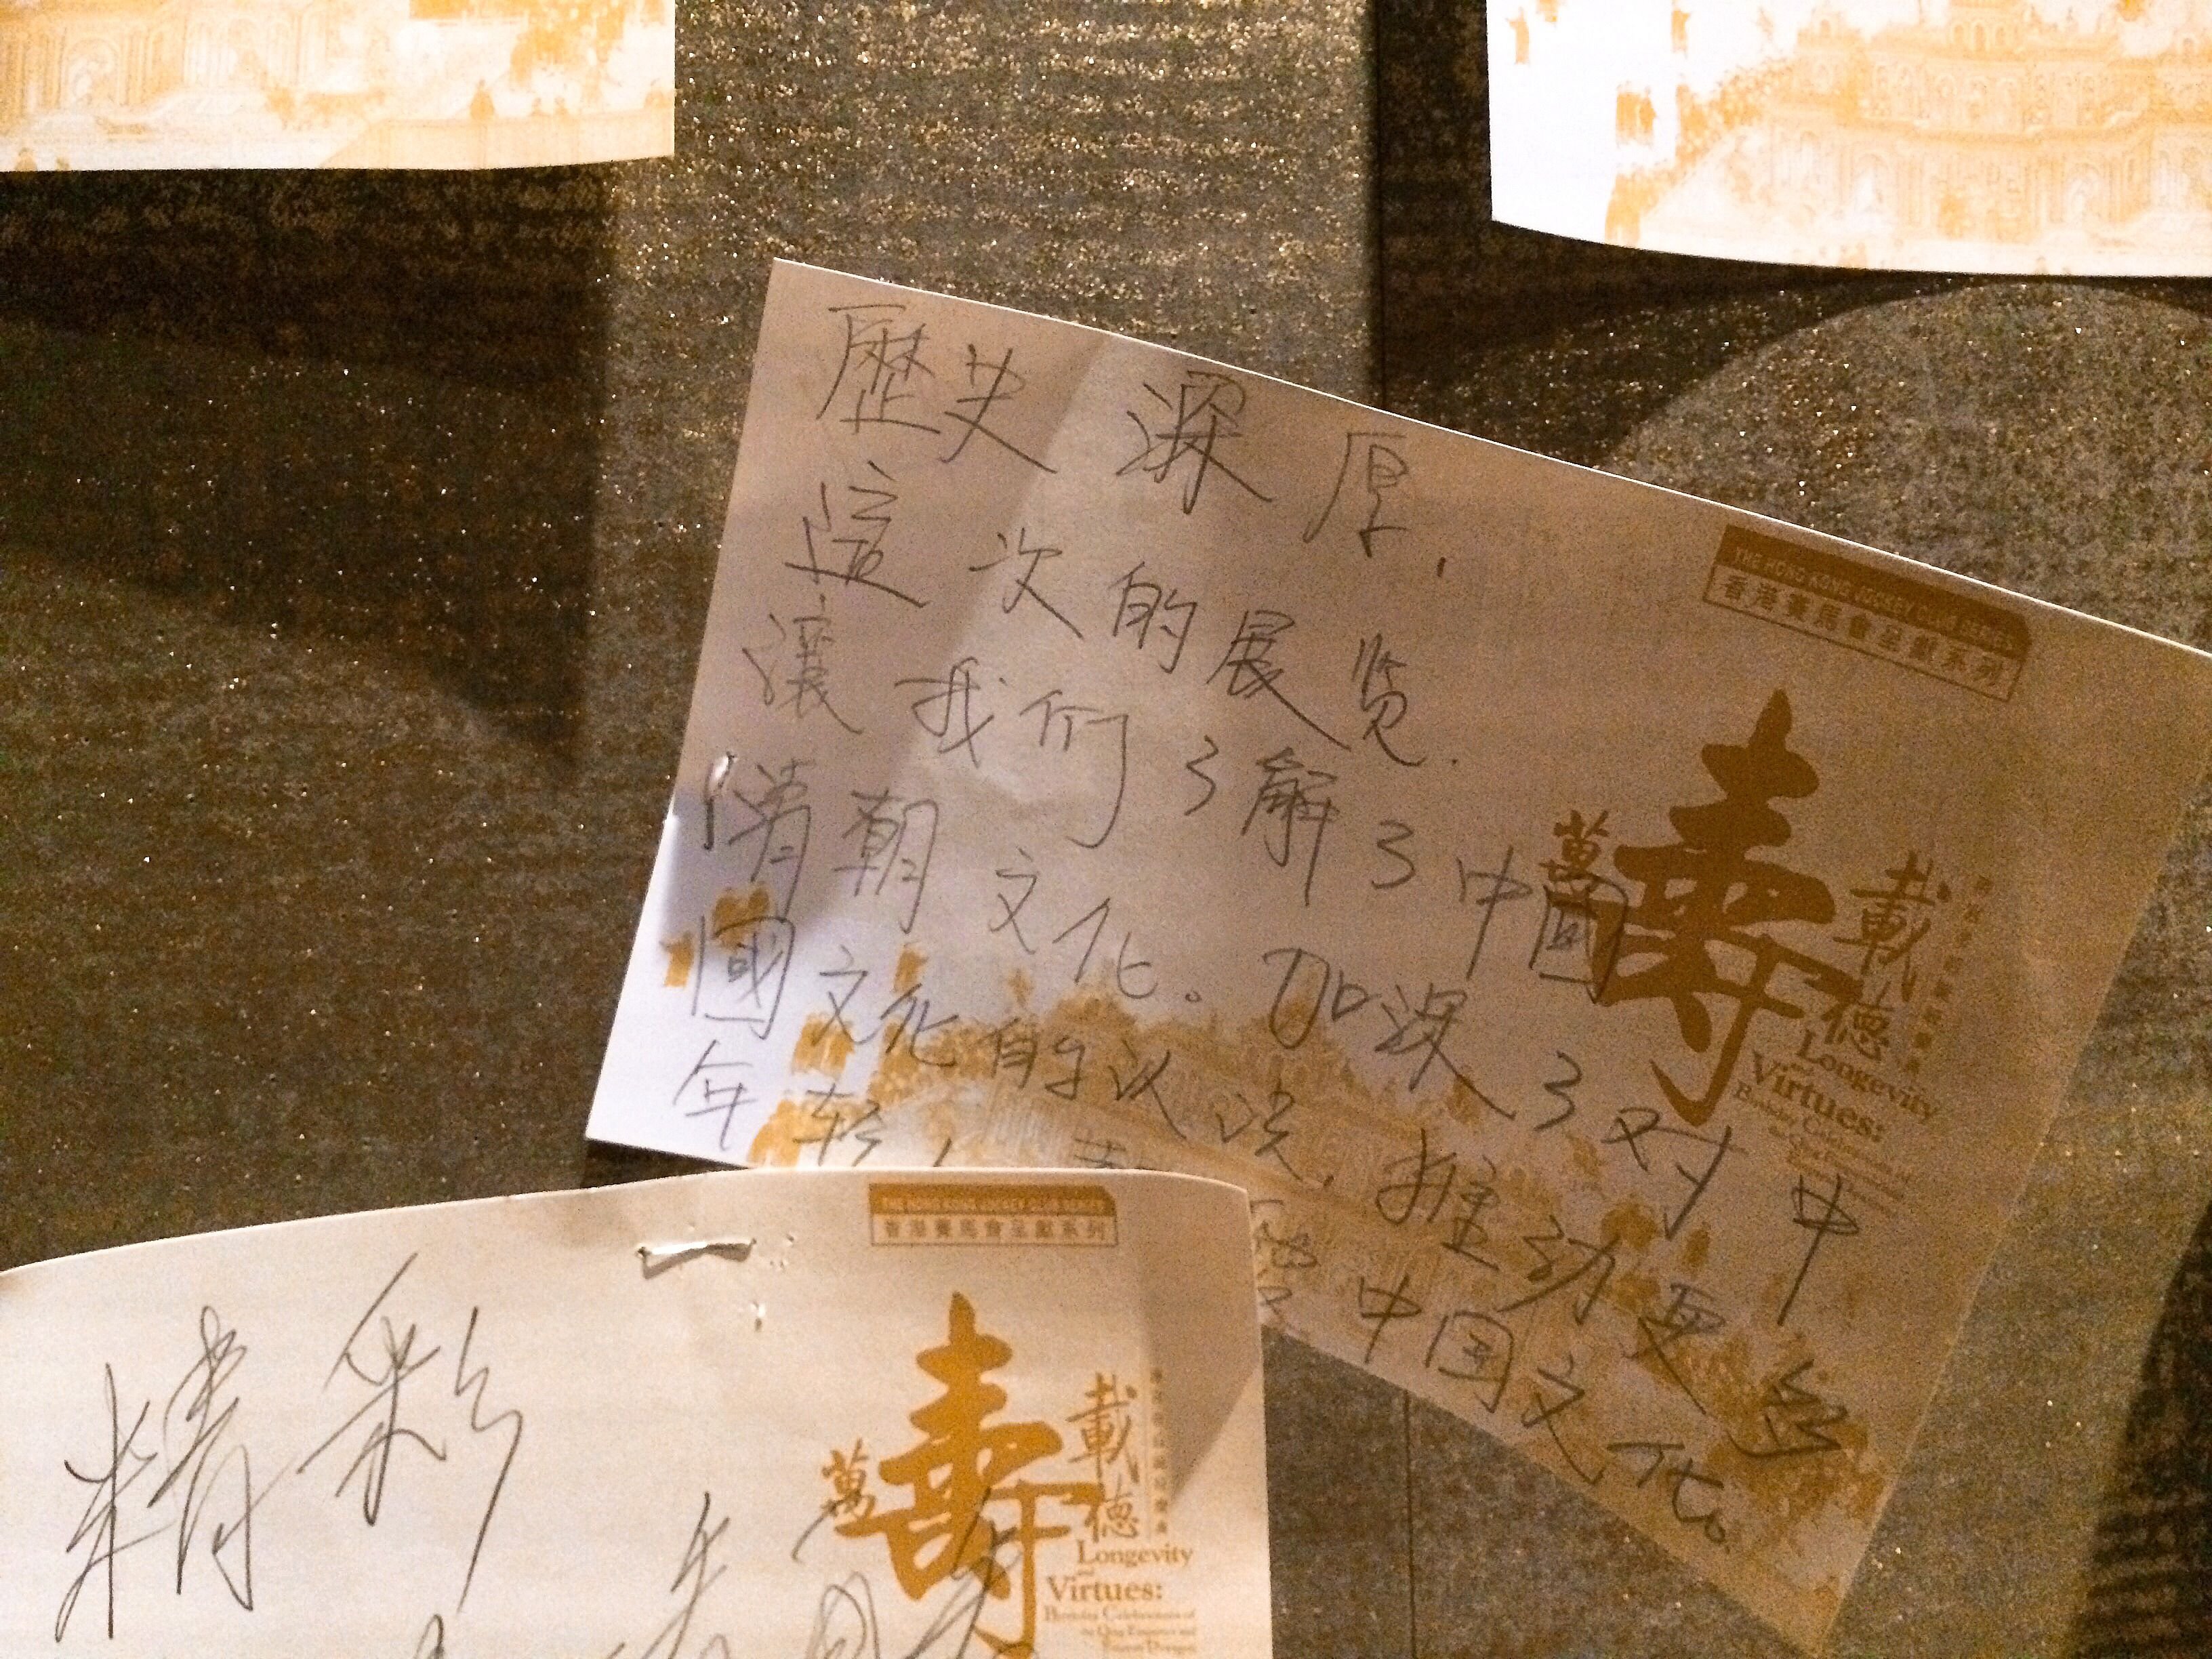 歷史深厚.
這次的展览.
讓我们了解了中國
清朝文化。加深了对中
國文化的认识,推动更多
年轻
中国文化。
THE HONG KONG JOCKEY CLUB SERIES
香港賽馬會呈獻系列
萬壽載德
Longevity
and
Virtues:
Birthday Celebrations of
the Qing Emperors and
精彩
THE HONG KONG JOCKEY CLUB SERIES
香港賽馬會呈獻系列
萬壽載德
Longevity
and
Virtues:
Birthday Celebrations of
the Qing Emperors and
Empress Dowagers